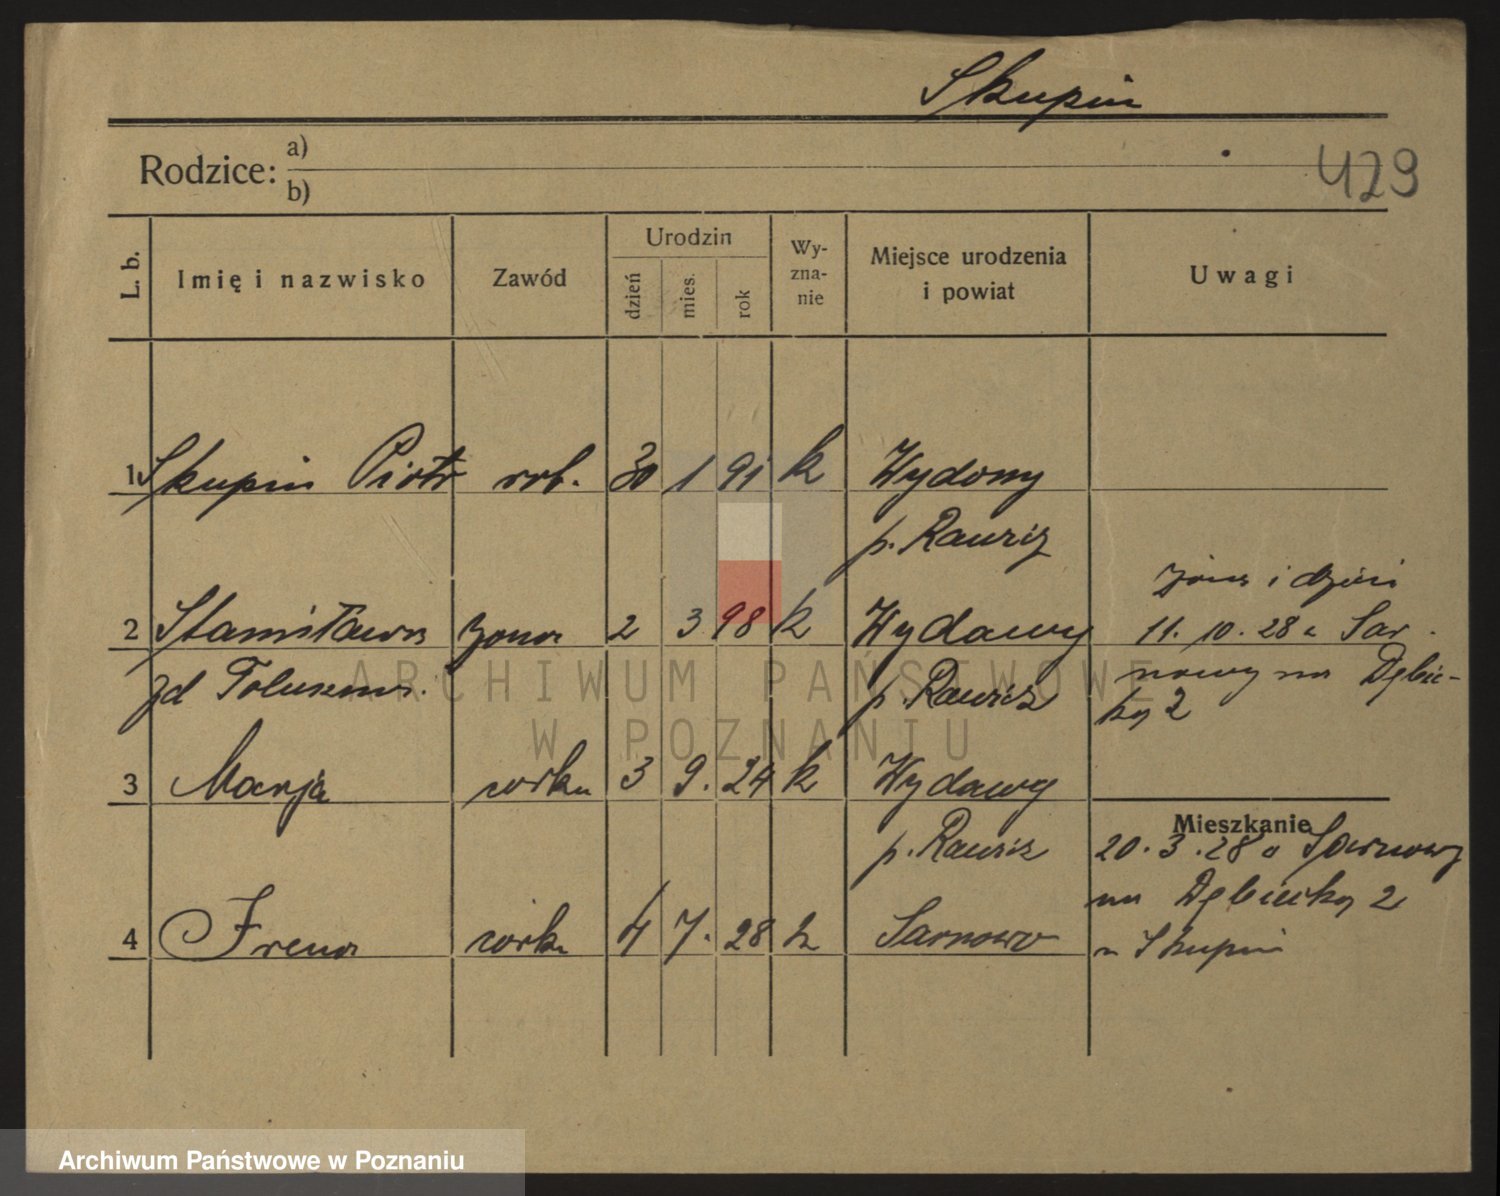 Skupin
Rodzice: a)
b)
429
L. b.
Imię i nazwisko
Zawód
Urodzin
dzień
mies.
rok
Wy-
zna-
nie
Miejsce urodzenia
i powiat
Uwagi
1 Skupin Piotr rob. 30 1 91 k Wydawy
p. Rawicz
żona i dzieci
2 Stanisława żona 2 3 98 k Wydawy 11. 10. 28 z Sar-
zd p. Rawicz nowy na Dębiec-
ką 2
3 Marja córka 3 9. 24 k Wydawy
Mieszkanie
p. Rawicz 20. 3. 28 z Sarnowy
na Dębiecką 2
4 Irena córka 4 7. 28 k Sarnowo
u Skupin
ARCHIWUM PAŃSTWOWE
W POZNANIU
Archiwum Państwowe w Poznaniu